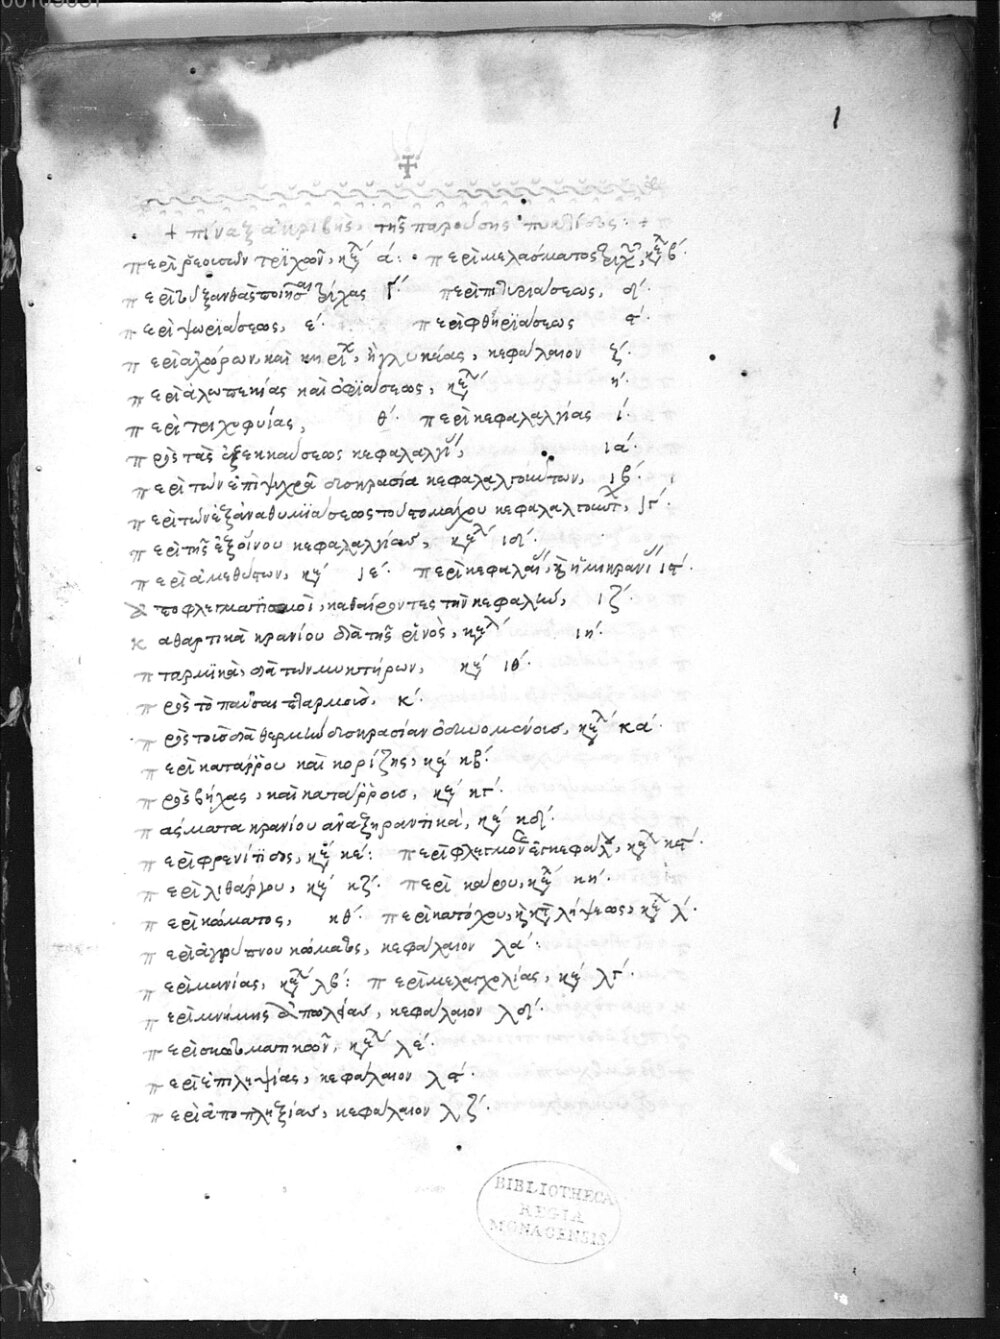 1
+ πίναξ ἀκριβὴς, τῆς παρούσης πυκτίδος: +
περὶ ῥεουσῶν τριχῶν, κεφ ά: περὶ μελάσματος τριχ, κεφ β΄
περὶ τοῦ ξανθὰς ποιῆσαι τρίχας γ΄ περὶ πιτυριάσεως, δ΄
περὶ ψωριάσεως, ε΄ περὶ φθειριάσεως ϛ΄
περὶ ἀχώρων, καὶ κηρί, ἢ γλυκέας, κεφάλαιον ζ΄
περὶ ἀλωπεκίας καὶ ὀφιάσεως, κεφ η΄
περὶ τριχοφυίας, θ΄ περὶ κεφαλαλγίας ι΄
πρὸς τὰς ἐξ ἐκκαύσεως κεφαλαλγί, ια΄
περὶ τῶν ἐπὶ ψυχρᾶ δυσκρασία κεφαλαλγούντων, ιβ΄
περὶ τῶν ἐξ ἀναθυμιάσεως τοῦ στομάχου κεφαλαλγούντ, ιγ΄
περὶ τῆς ἐξ οἴνου κεφαλαλγίας, κεφ ιδ΄
περὶ ἀμεθύστων, κεφ ιε΄ περὶ κεφαλαί, καὶ ἡμικρανί ιϛ΄
ἀποφλεγματισμοὶ, καθαίροντες τὴν κεφαλὴν, ιζ΄
καθαρτικὰ κρανίου διὰ τῆς ῥινὸς, κεφ ιη΄
πταρμικὰ, διὰ τῶν μυκτήρων, κεφ ιθ΄
πρὸς τὸ παῦσαι πταρμοὺς, κ΄
πρὸς τοὺς διὰ θερμὴν δυσκρασίαν ὀδυνομένους, κεφ κα΄
περὶ κατάρρου καὶ κορίζης, κεφ κβ΄
πρὸς βῆχας, καὶ κατάρροις, κεφ κγ΄
πάσματα κρανίου ἀναξηραντικά, κεφ κδ΄
περὶ φρενίτιδος, κεφ κε: περὶ φλεγμονῆς ἐγκεφάλ, κεφ κϛ΄
περὶ λιθάργου, κεφ κζ΄ περὶ κάρου, κεφ κη΄
περὶ κώματος, κθ΄ περὶ κατόχου, ἢ καταλήψεως, κεφ λ΄
περὶ ἀγρύπνου κώματος, κεφάλαιον λα΄:
περὶ μανίας, κεφ λβ: περὶ μελαγχολίας, κεφ λγ΄
περὶ μνήμης ἀπολείας, κεφάλαιον λδ΄
περὶ σκωτωματικῶν, κεφ λε΄
περὶ ἐπιληψίας, κεφάλαιον λϛ΄
περὶ ἀποπληξίας, κεφάλαιον λζ΄
BIBLIOTHECA
REGIA
MONACENSIS